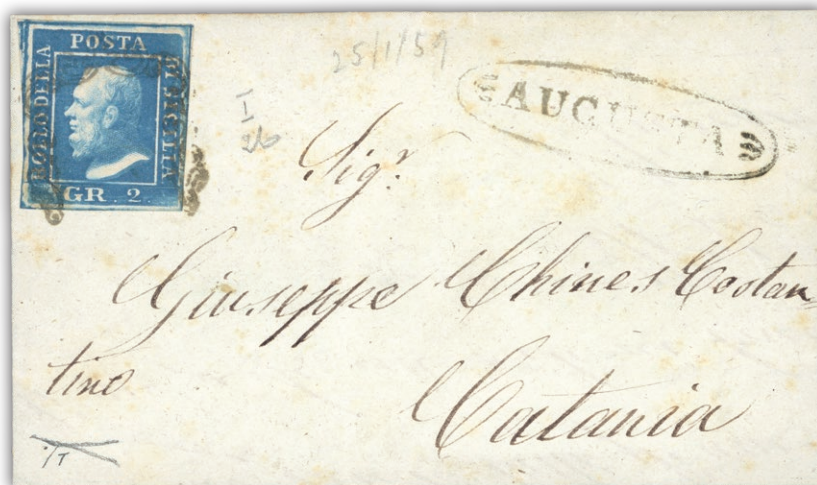 POSTA
BOLLO DELLA
DI SICILIA
GR. 2.
25/1/59
AUGUSTA
I
26
Sigr.
Giuseppe Chines Costan-
tino
Catania